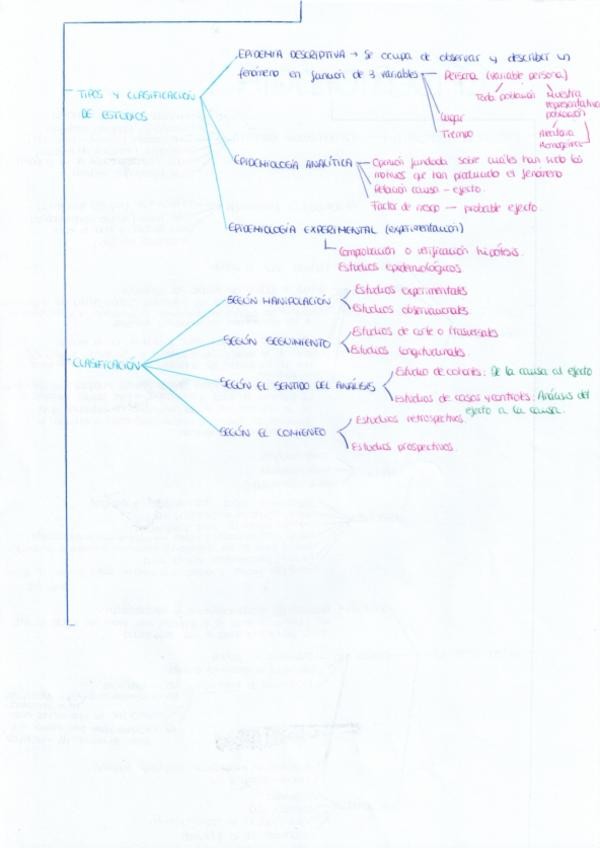 TIPOS Y CLASIFICACIÓN
DE ESTUDIOS
EPIDEMIA DESCRIPTIVA → Se ocupa de observar y describir un
fenómeno en función de 3 variables
Persona (variable persona)
Toda población
Muestra
representativa
población
Aleatoria
Homogénea
Lugar
Tiempo
EPIDEMIOLOGÍA ANALÍTICA
Opinión fundada sobre cuáles han sido los
motivos que han producido el fenómeno
Relación causa - efecto.
Factor de riesgo — probable efecto.
EPIDEMIOLOGÍA EXPERIMENTAL (experimentación)
Comprobación o verificación hipótesis.
Estudios epidemiológicos
CLASIFICACIÓN
SEGÚN MANIPULACIÓN
Estudios experimentales
Estudios observacionales
SEGÚN SEGUIMIENTO
Estudios de corte o trasversales
Estudios longitudinales
SEGÚN EL SENTIDO DEL ANÁLISIS
Estudio de cohortes: De la causa al efecto
Estudios de casos y controles: Análisis del
efecto a la causa.
SEGÚN EL COMIENZO
Estudios retrospectivos
Estudios prospectivos.